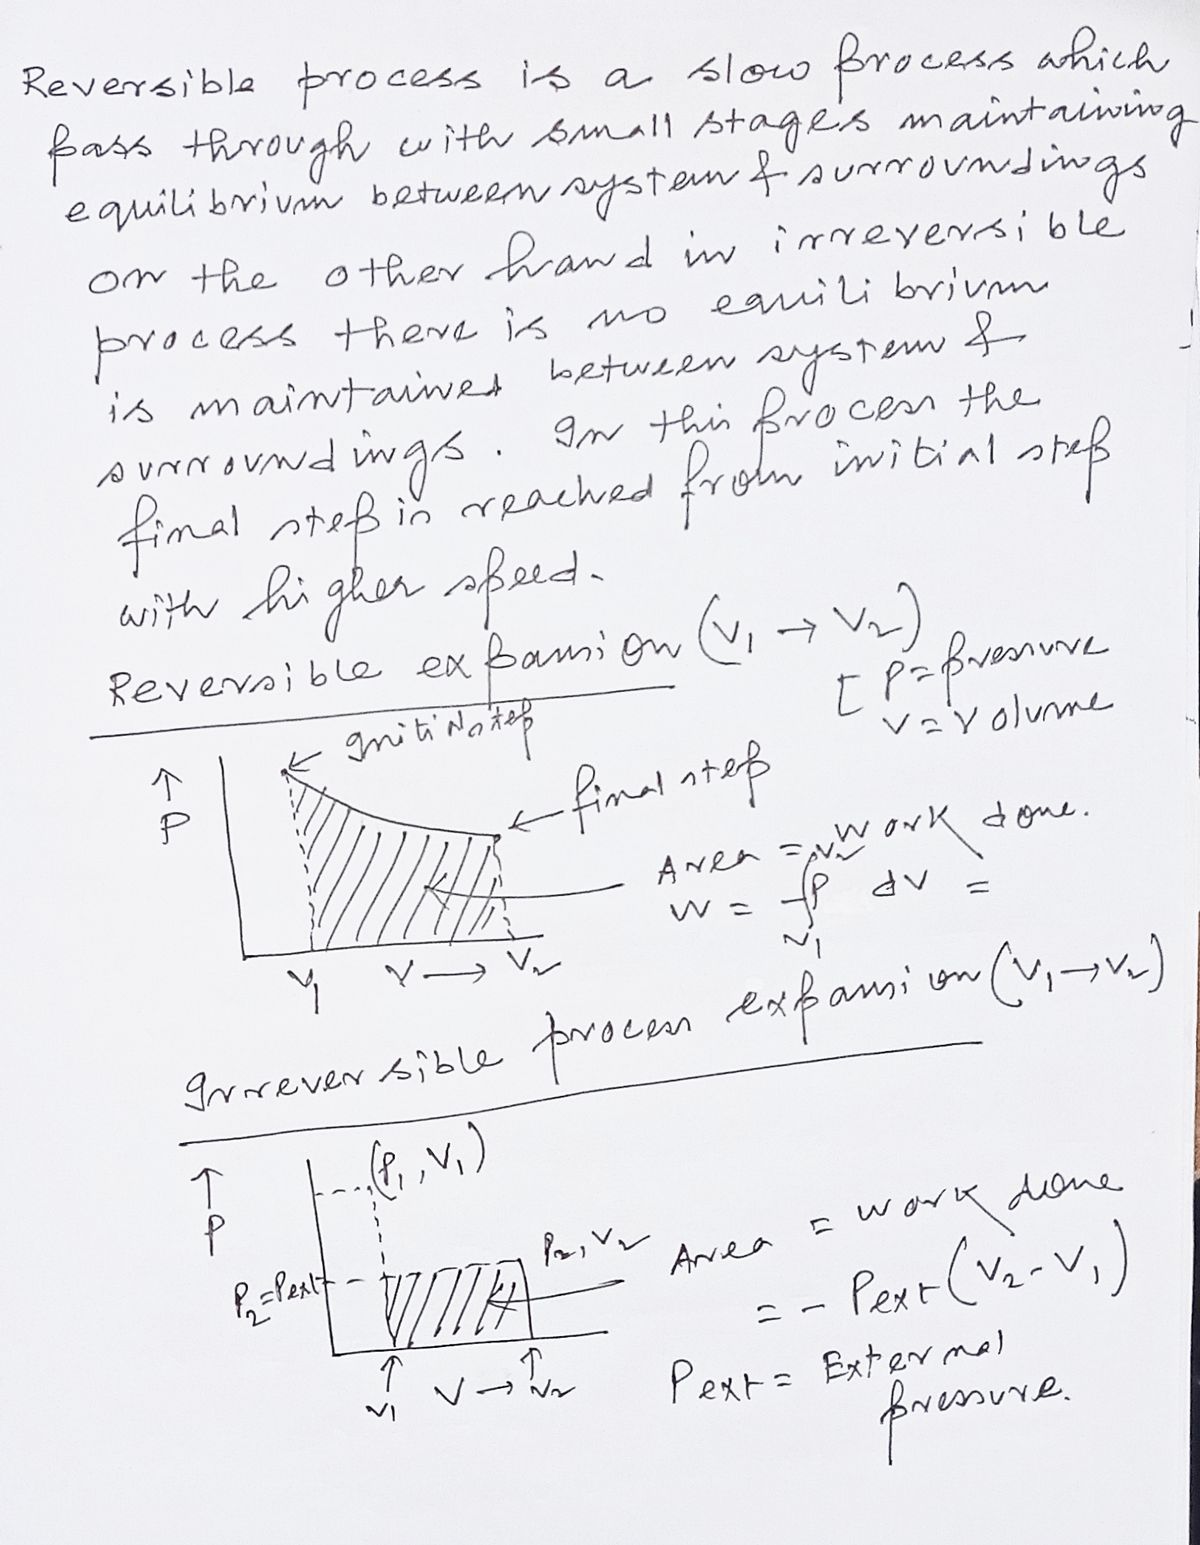 Reversible process is a slow process which
pass through with small stages maintaining
equilibrium between system & surroundings
on the other hand in irreversible
process there is no equilibrium
is maintained between system &
surroundings. In this process the
final step is reached from initial step
with higher speed.
Reversible expansion (V₁ → V₂)
[ P = pressure
V = Volume
Initial step
↑
P
← final step
Area = work done.
W = -∫ P dV =
V₂
V₁
V₁ V → V₂
Irreversible process expansion (V₁ → V₂)
↑
P
(P₁, V₁)
P₂, V₂
P₂ = Pext
Area = work done
= - Pext (V₂ - V₁)
Pext = External
pressure.
↑ ↑
V₁ V → V₂